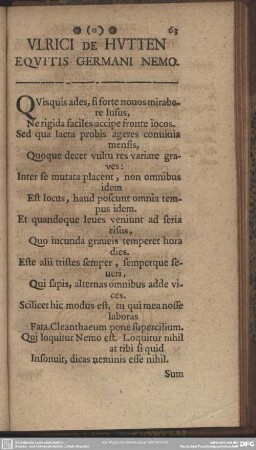 (o) 63
VLRICI DE HVTTEN
EQVITIS GERMANI NEMO.
QVisquis ades, si forte nouos mirabe-
re lusus,
Ne rigida faciles accipe fronte iocos.
Sed qua laeta probis ageres conuiuia
mensis,
Quoque decet vultu res variare gra-
ves:
Inter se mutata placent, non omnibus
idem
Est locus, haud poscunt omnia tem-
pus idem.
Et quandoque leues veniunt ad seria
risus,
Quo iucunda graueis temperet hora
dies.
Este alii tristes semper, semperque se-
ueri,
Qui sapis, alternas omnibus adde vi-
ces.
Scilicet hic modus est, tu qui mea nosse
laboras
Fata. Cleanthaeum pone supercilium.
Qui loquitur Nemo est. Loquitur nihil
at tibi si quid
Insonuit, dicas neminis esse nihil.
Sum